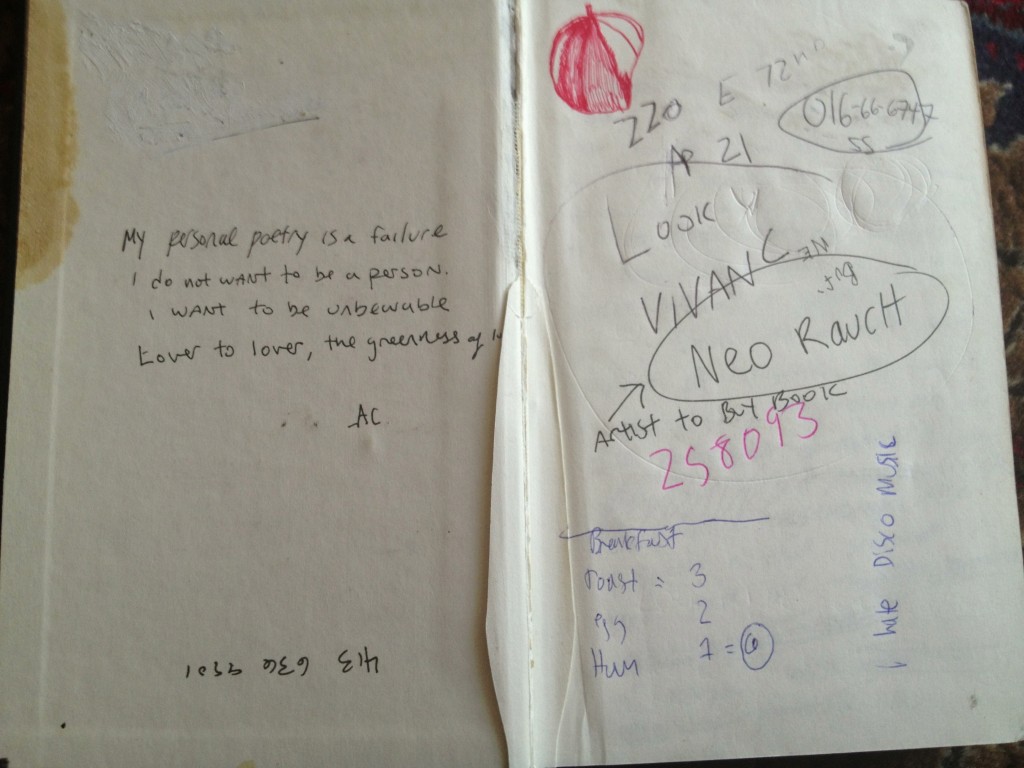 My personal poetry is a failure
I do not want to be a person.
I want to be unbearable
Lover to lover, the greenness of
AC
413 636
220 E 72nd
Ap 21
016-66-6747
55
Look
VIVAN
Neo Rauch
Artist to Buy Book
258093
Breakfast
roast = 3
egg 2
Hum 1 = 6
I hate Disco Music